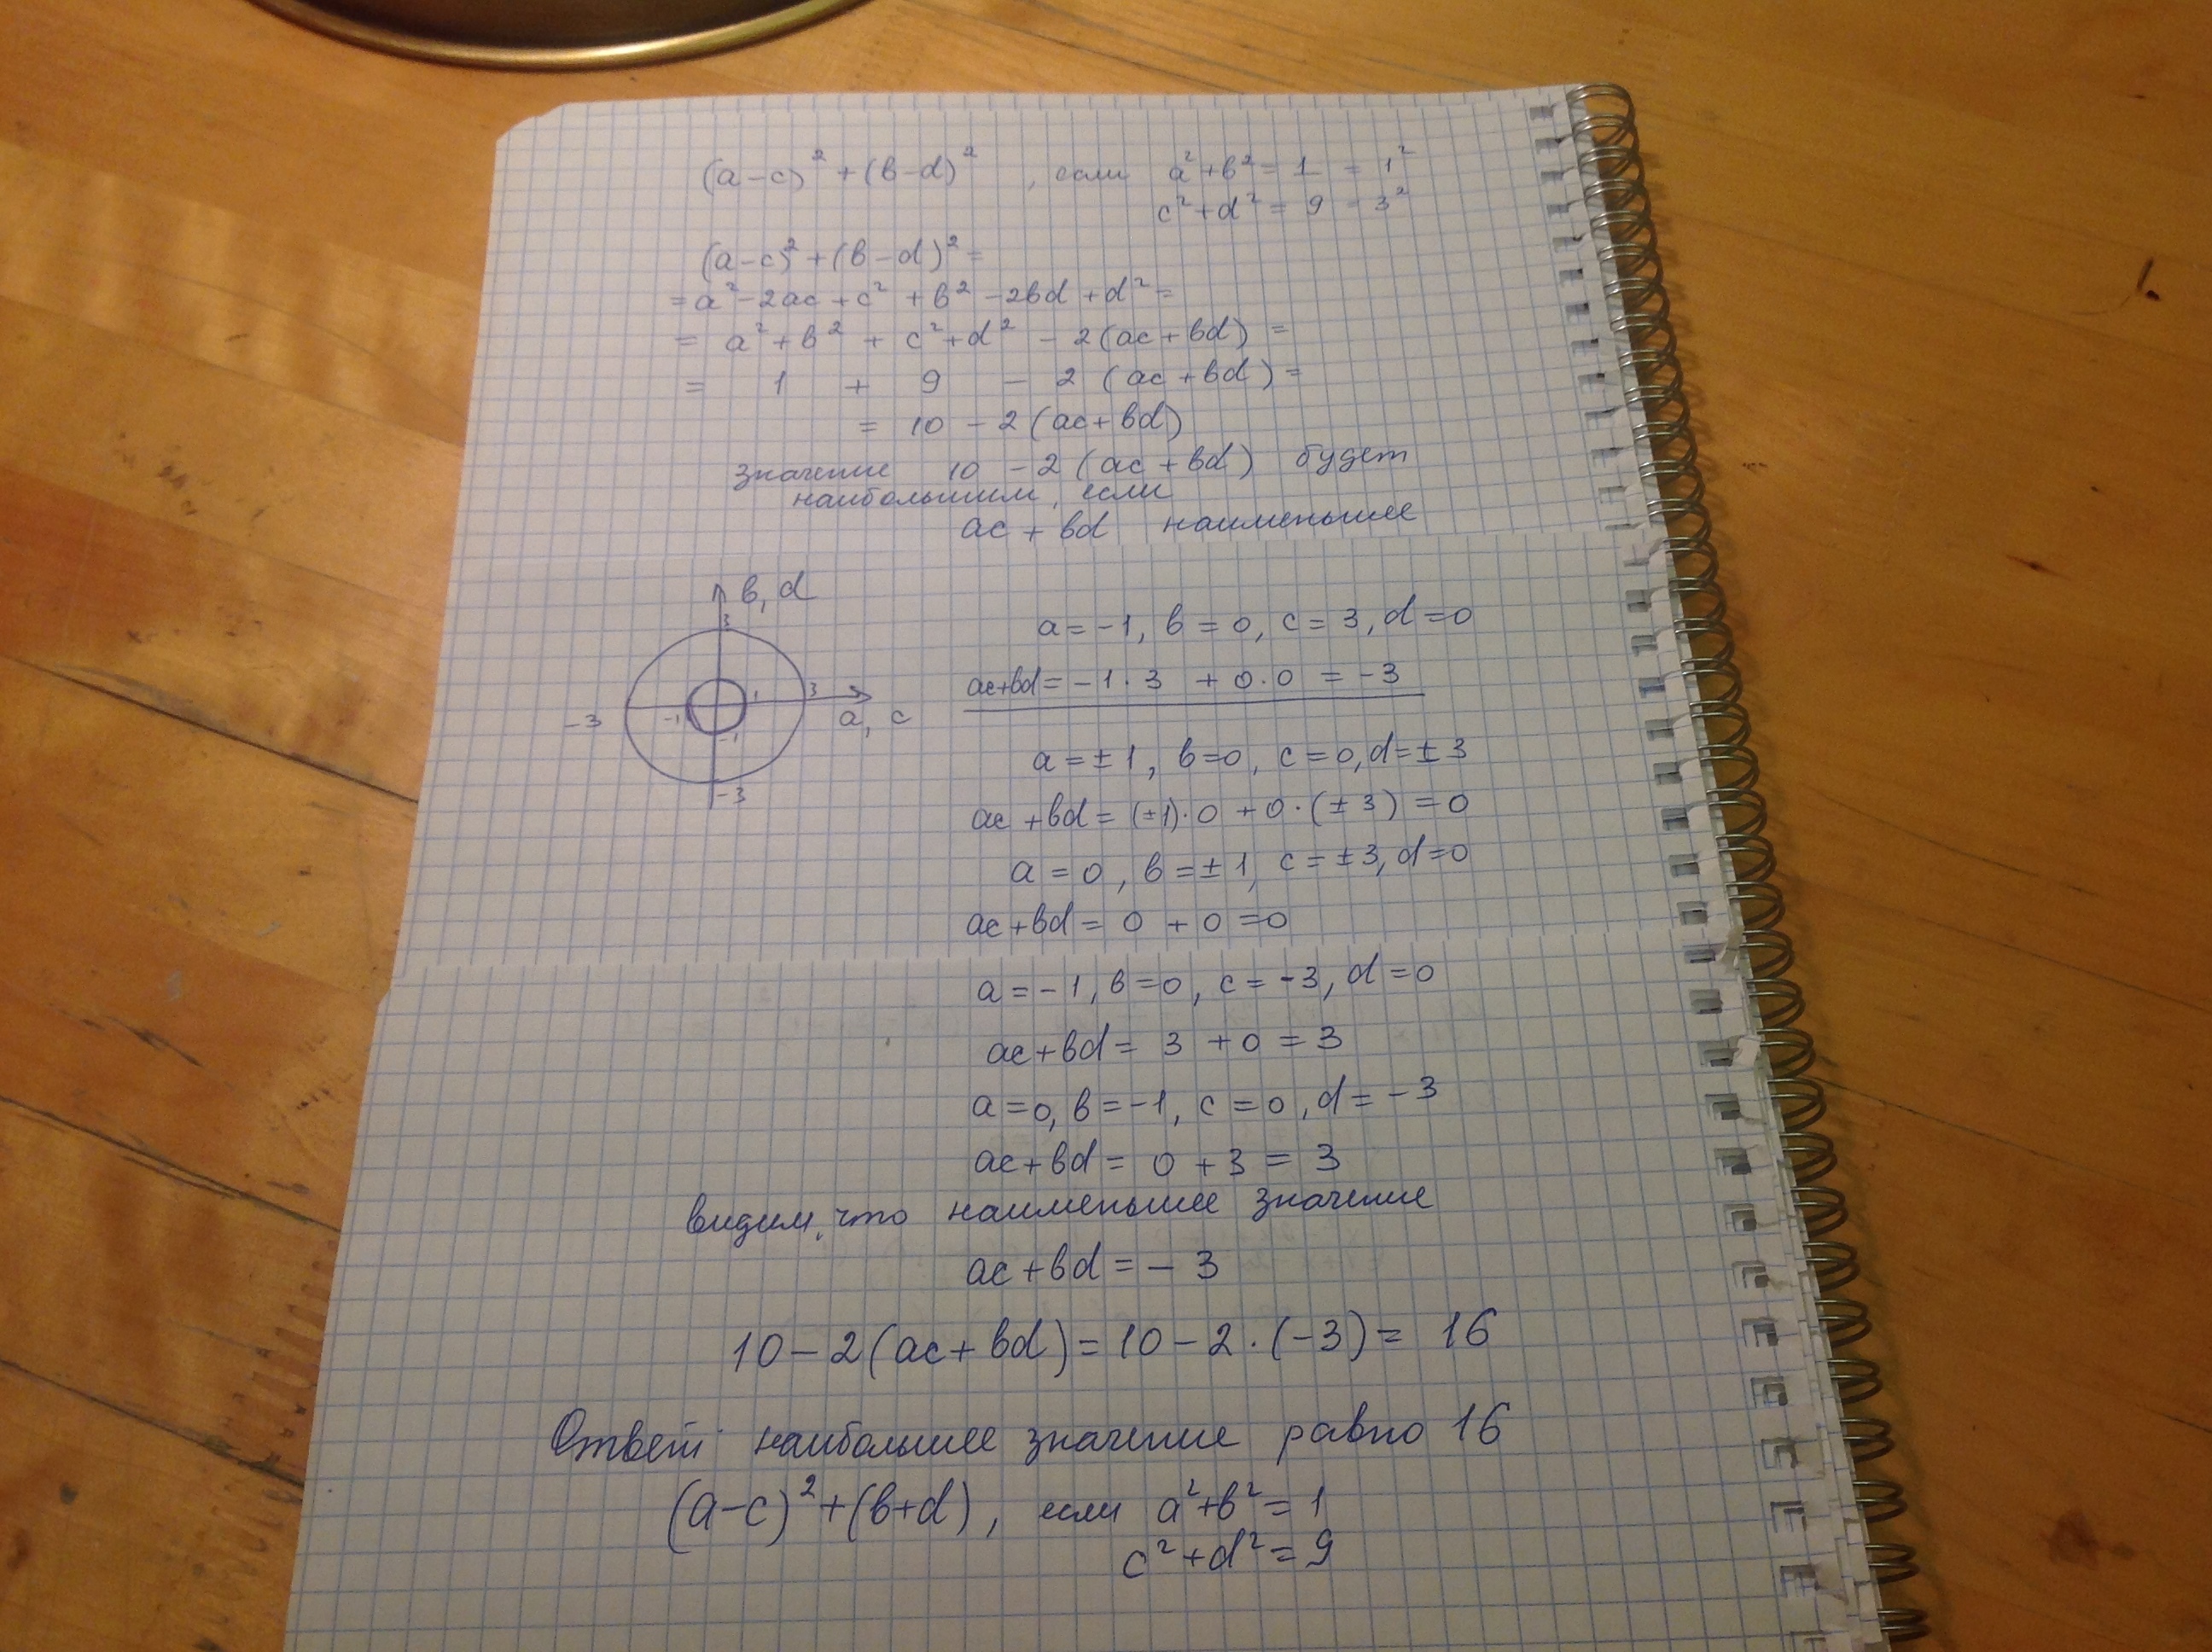 (a-c)² + (в-d)², если a²+в² = 1 = 1²
c²+d² = 9 = 3²
(a-c)² + (в-d)² =
= a² - 2ac + c² + в² - 2вd + d² =
= a² + в² + c² + d² - 2(ac + вd) =
= 1 + 9 - 2 (ac + вd) =
= 10 - 2(ac + вd)
значение 10 - 2 (ac + вd) будет
наибольшим, если
ac + вd наименьшее
в, d
3
-3 -1 1 3
a, c
-1
-3
a = -1, в = 0, c = 3, d = 0
ac+вd = -1·3 + 0·0 = -3
a = ±1, в=0, c=0, d=±3
ac + вd = (±1)·0 + 0·(±3) = 0
a = 0, в = ±1, c = ±3, d=0
ac + вd = 0 + 0 = 0
a = -1, в=0, c = -3, d = 0
ac + вd = 3 + 0 = 3
a = 0, в = -1, c = 0, d = -3
ac + вd = 0 + 3 = 3
видим, что наименьшее значение
ac + вd = - 3
10 - 2(ac + вd) = 10 - 2·(-3) = 16
Ответ: наибольшее значение равно 16
(a-c)² + (в+d), если a²+в² = 1
c²+d² = 9